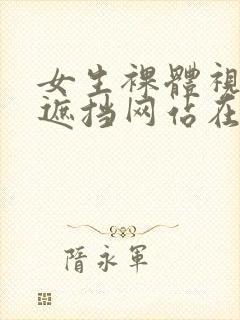 女生裸體視
遮挡网佔在
隋永軍